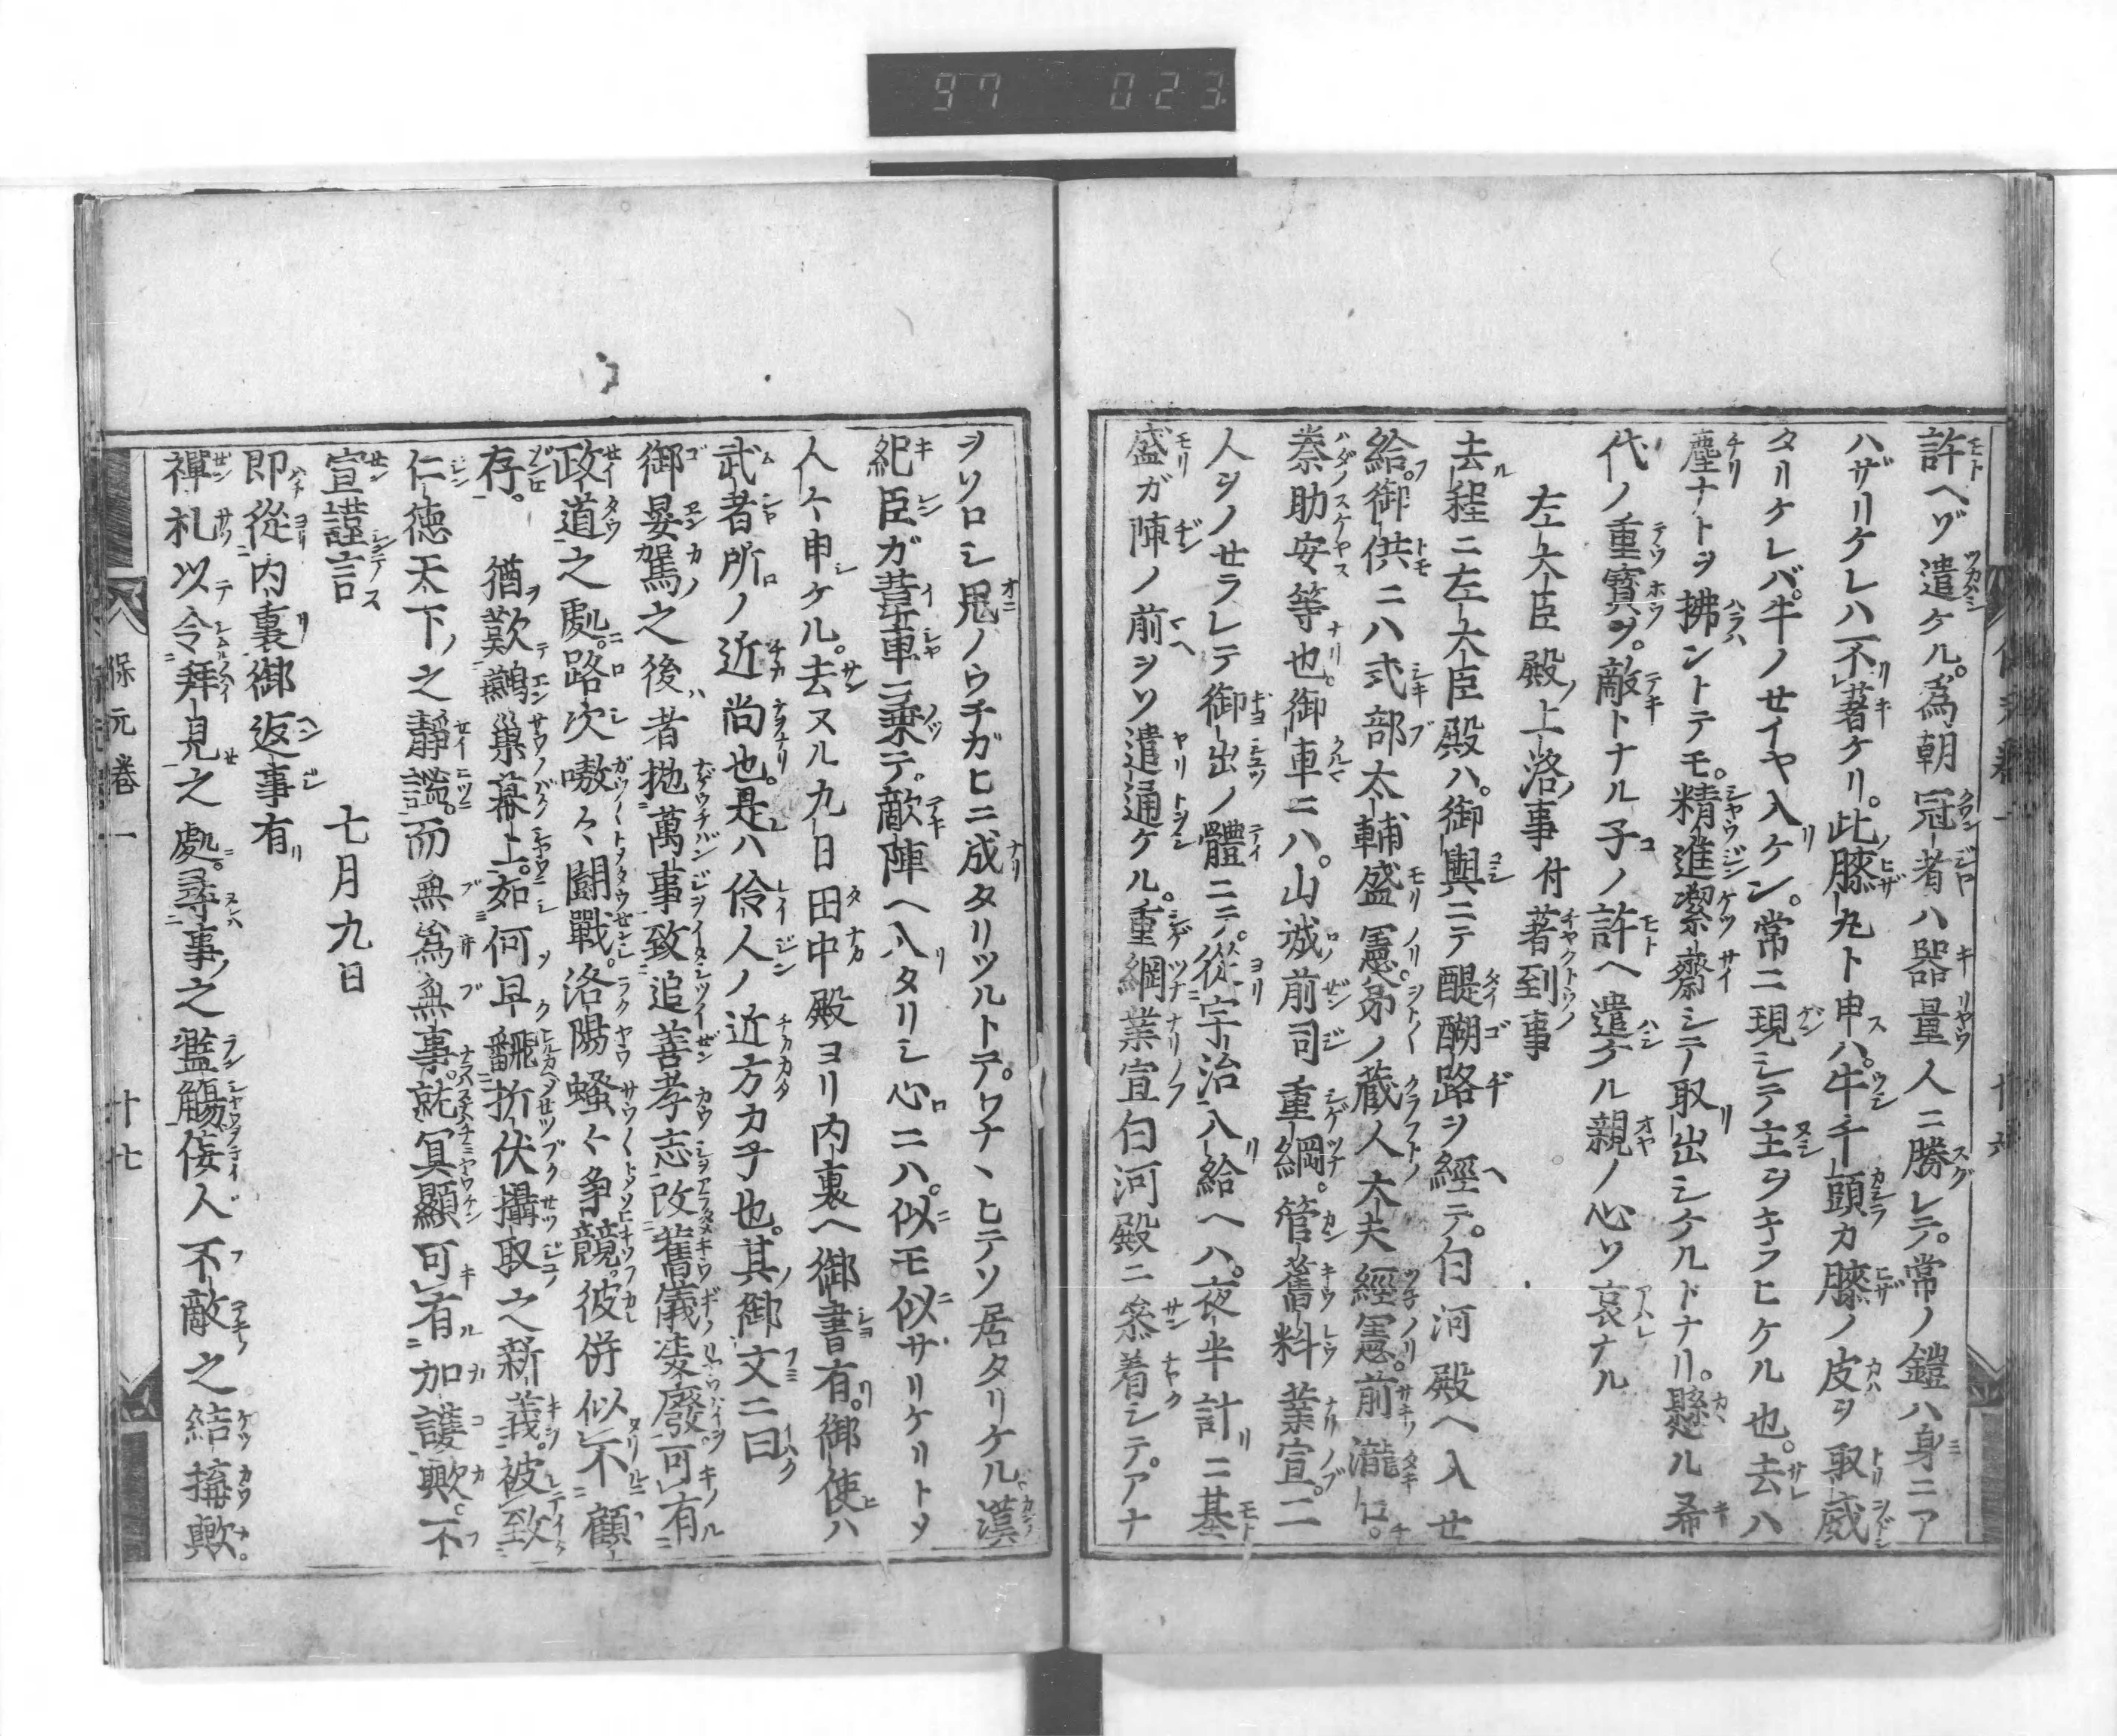 97 023
許ヘゾ遣ケル。爲朝冠者ハ器量人ニ勝レテ。常ノ鎧ハ身ニア
ハザリケレハ不著ケリ。此膝丸ト申ハ。牛千頭カ膝ノ皮ヲ取威
タリケレバ。牛ノせイヤ入ケン。常ニ現シテ主ヲキラヒケル也。去ハ
塵ナトヲ拂ントテモ。精進潔齋シテ取出シケルトナリ。懸ル希
代ノ重寳ヲ。敵トナル子ノ許ヘ遣ケル親ノ心ソ哀ナル
左大臣殿上洛事付著到事
去程ニ左大臣殿ハ。御輿ニテ醍醐路ヲ經テ。白河殿ヘ入せ
給。御供ニハ式部太輔盛憲。弟ノ蔵人大夫經憲。前瀧口。
秦助安等也。御車ニハ。山城前司重綱。管舊料業宣。二
人ヲノせラレテ御出ノ體ニテ。從宇治入給ヘハ。夜半計ニ基
盛ガ陣ノ前ヲソ遣通ケル。重綱業宣白河殿ニ參着シテ。アナ
ヲソロシ鬼ノウチガヒニ成タリツルトテ。ワナヽヒテソ居タリケル漢
紀臣ガ葦車ニ乘テ。敵陣ヘ入タリシ心ニハ。似モ似ザリケリトソ
人々申ケル。去ヌル九日田中殿ヨリ内裏ヘ御書有。御使ハ
武者所ノ近尚也。是ハ伶人ノ近方カ子也。其御文ニ曰
御晏駕之後者抛萬事致追善孝志改舊儀凌廢可有
政道之處。路次嗷々鬪戰。洛陽蟄々爭競。彼併似不顧
存。猶歎鷰巢幕上。如何早飜折伏攝取之新義。被致
仁德天下之靜謐。而無爲無事。就冥顯可有加護歟。不
宣謹言
七月九日
即從内裏御返事有
禪札以令拜見之處。尋事之濫觴佞人不敵之結搆歟。
保元巻一
十七